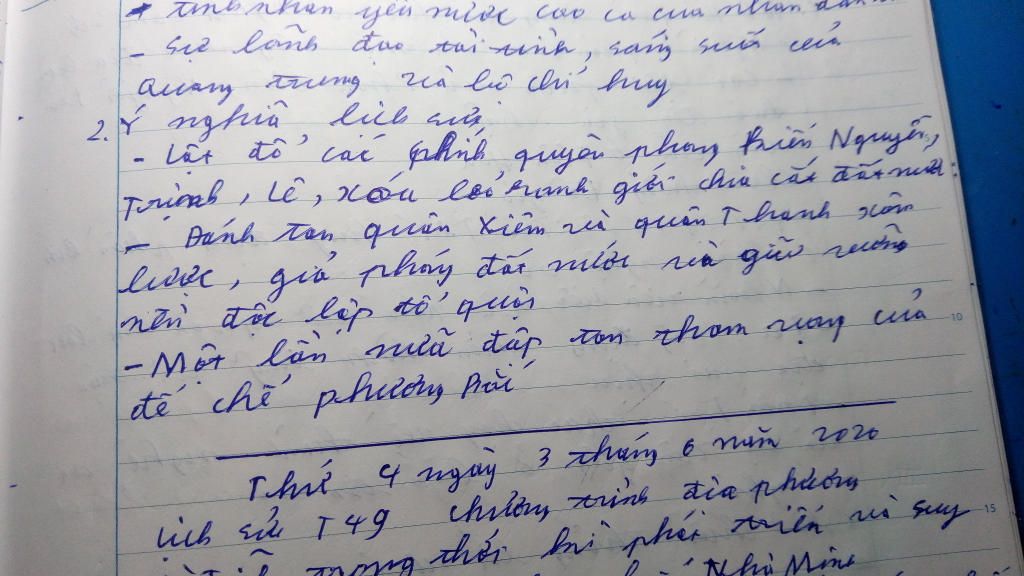 tinh thần yêu nước cao cả của nhân dân
- Sự lãnh đạo tài tình, sáng suốt của
Quang trung và bộ chỉ huy
2. Ý nghĩa lịch sử
- Lật đổ các chính quyền phong kiến Nguyễn,
Trịnh, Lê, xóa bỏ ranh giới chia cắt đất nước
- Đánh tan quân Xiêm và quân Thanh xâm
lược, giải phóng đất nước và giữ vững
nền độc lập tổ quốc
- Một lần nữa đập tan tham vọng của
đế chế phương Bắc
10
Thứ 4 ngày 3 tháng 6 năm 2020
Lịch sử T49 chương trình địa phương
15
trong thời kì phát triển và suy
Nhà Minh